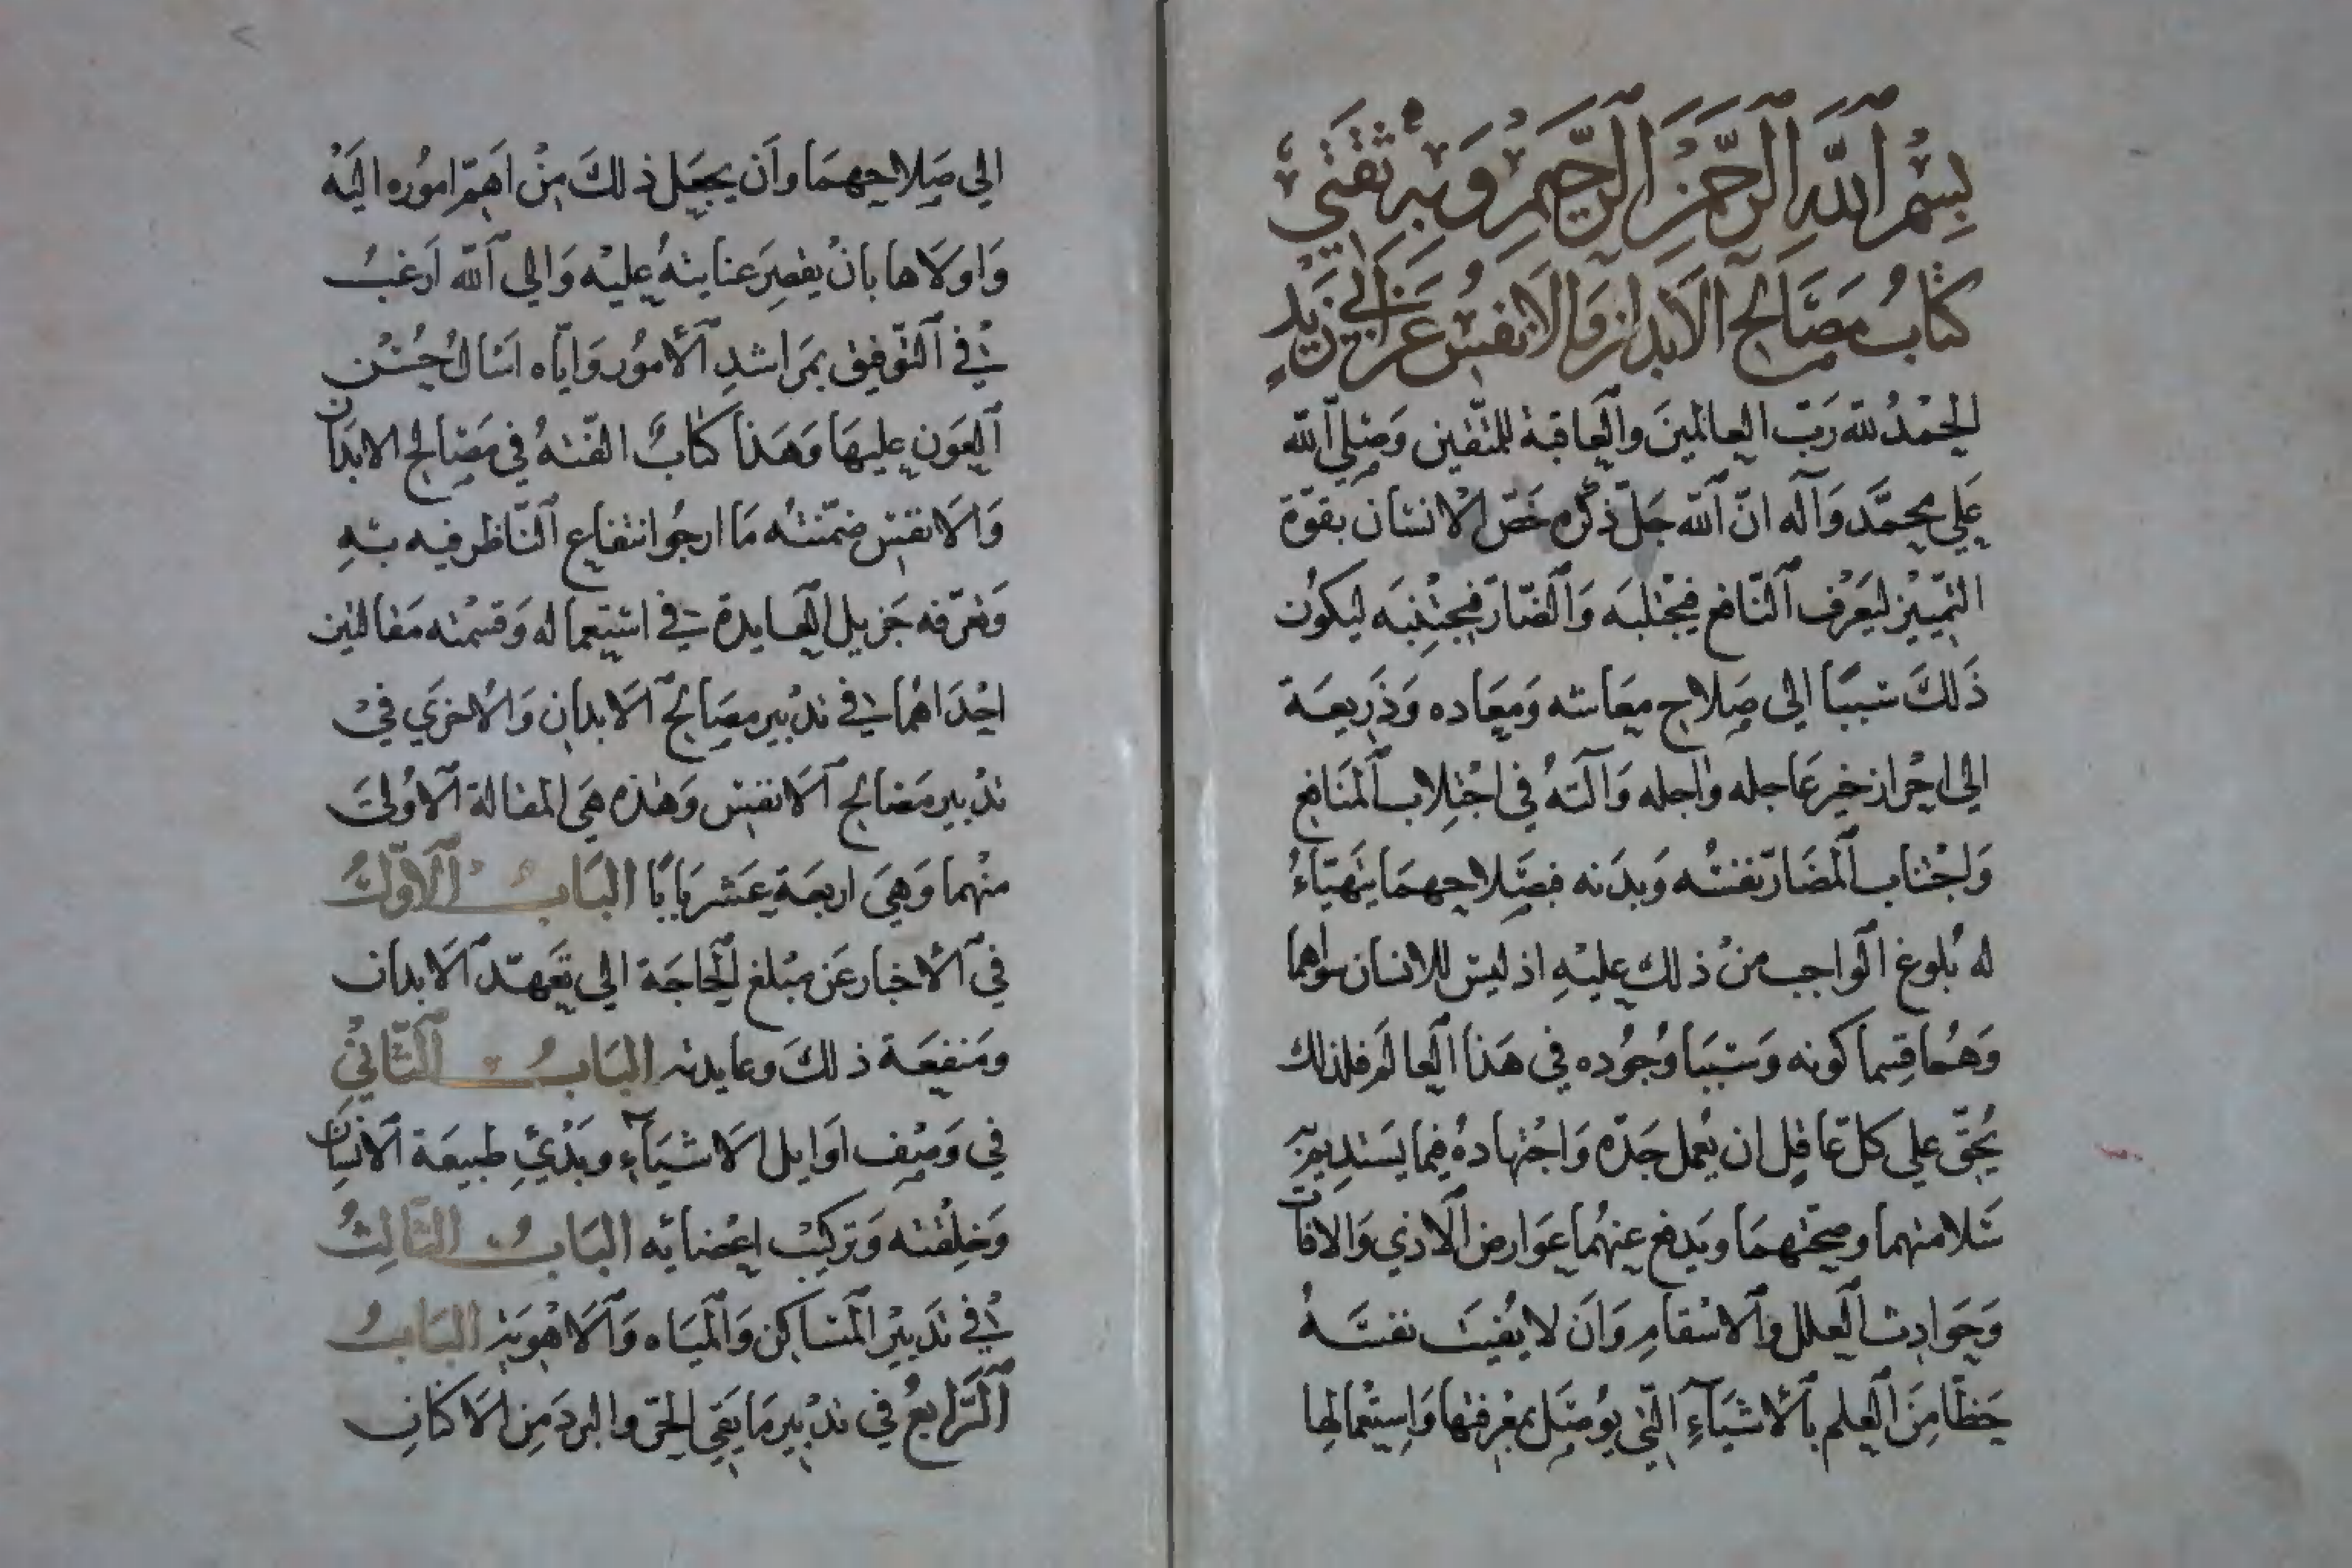 بِسْمِ ٱللَّهِ ٱلرَّحْمَنِ ٱلرَّحِيمِ وَبِهِ ثِقَتِي
كتابُ مَصَالحِ الأبدان وَالأنفُس عَن أَبي زَيدٍ
الحمْدُ لله رَبّ العالمينَ والعَاقبة للمتّقين وَصَلى ٱلله
عَلى محمَّد وَآله انّ ٱلله جَلّ ذكرُه خَصّ الانسان بقوّة
التّمييْز ليَعرْف ٱلنّافع فيَجْتلبَه وَٱلضّارّ فيجْتنِبَه ليكوُن
ذَلكَ سَببًا الى صَلاح معَاشه وَمعَاده وَذَرِيعَة
الى احْراز خير عَاجله واجله وَآلَتهُ في اجْتلاب ٱلمَنَافع
وَاجْتناب ٱلمضَارّ نفسُه وَبدَنه فبصَلاحهمَا يتَهيّاءُ
له بُلوغ الوَاجب منْ ذلك عليْهِ اذ ليس للانسان سواهما
وَهُما قِسما كونه وَسَببَا وُجوُده في هَذا العالم فلذلك
يُحقّ على كلّ عَاقِل ان يُعمل جَدّه وَاجْتهادهُ فيما يَسْتديم به
سَلامتهما وصِحّتهمَا ويَدفع عنهُما عوَارض ٱلاذي وَالافات
وَحَوادِث ٱلعلل وٱلاسْقامِ وَانَ لا يُغيبَ نفسَهُ
حَظّا مِنَ ٱلعلم بٱلأشيَآءِ الّتي يوُصَل بمعْرفتها وَاسِتعْمالها
الي صَلاحهمَا وَأن يجعَل ذلكَ منْ اَهمّ اموُره اليَهْ
وَاوَلاها بانْ يقصِرَ عنايتهُ عليْه وَالي ٱلله اَرغبُ
في ٱلتّوفيق بمَرَاشدِ ٱلأموُر وَايّاه اسَال حُسْن
ٱلعَون عليهَا وَهَذا كتابٌ الفّتهُ في مَصَالح الابدَان
وَالاَنفس ضمّنتُه مَا ارجُوا انتفاع ٱلنّاظر فيه بهِ
وَتعَرّفه جَزيل ٱلعَايدة في اسْتعماله وَقسمْته مَقالتين
احْدَاهُما في تدْبير مصَالح ٱلاَبدان وَالاخرَي فيْ
تدْبير مَصَالح ٱلاَنفس وَهٰذه هيَ المقالة ٱلاوُليَ
منْهما وَهيَ اربعَة عَشر بَابًا البَابُ ٱلاَوّلُ
في ٱلأخبار عَن مبْلغ ٱلحَاجَة الي تعَهّد ٱلاَبدان
ومَنفعَة ذلكَ وعايدته البَابُ ٱلثّانيْ
في وَصْف اوَايل ٱلاَشيَآء وبَدْيِ طبيعَة ٱلانسَان
وَخلْقته وَتركيْب اعْضَايه البَابُ الثّالثُ
في تَدبيْر ٱلمسَاكن وَٱلميَاه وَٱلاَهْوية البَابُ
ٱلرّابعُ في تدْبير مَا يقي الحرّ والبردَ مِن ٱلاَكنان